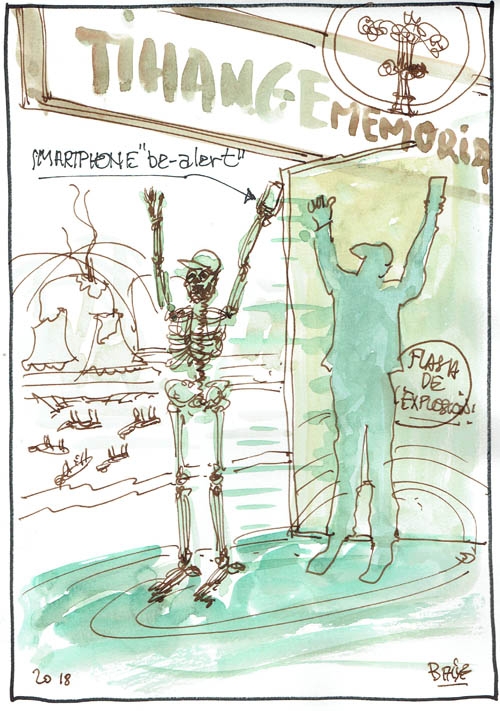 TIHANGE
MEMORIA
SMARTPHONE "be-alert"
FLASH
DE
L'EXPLOSION
2018